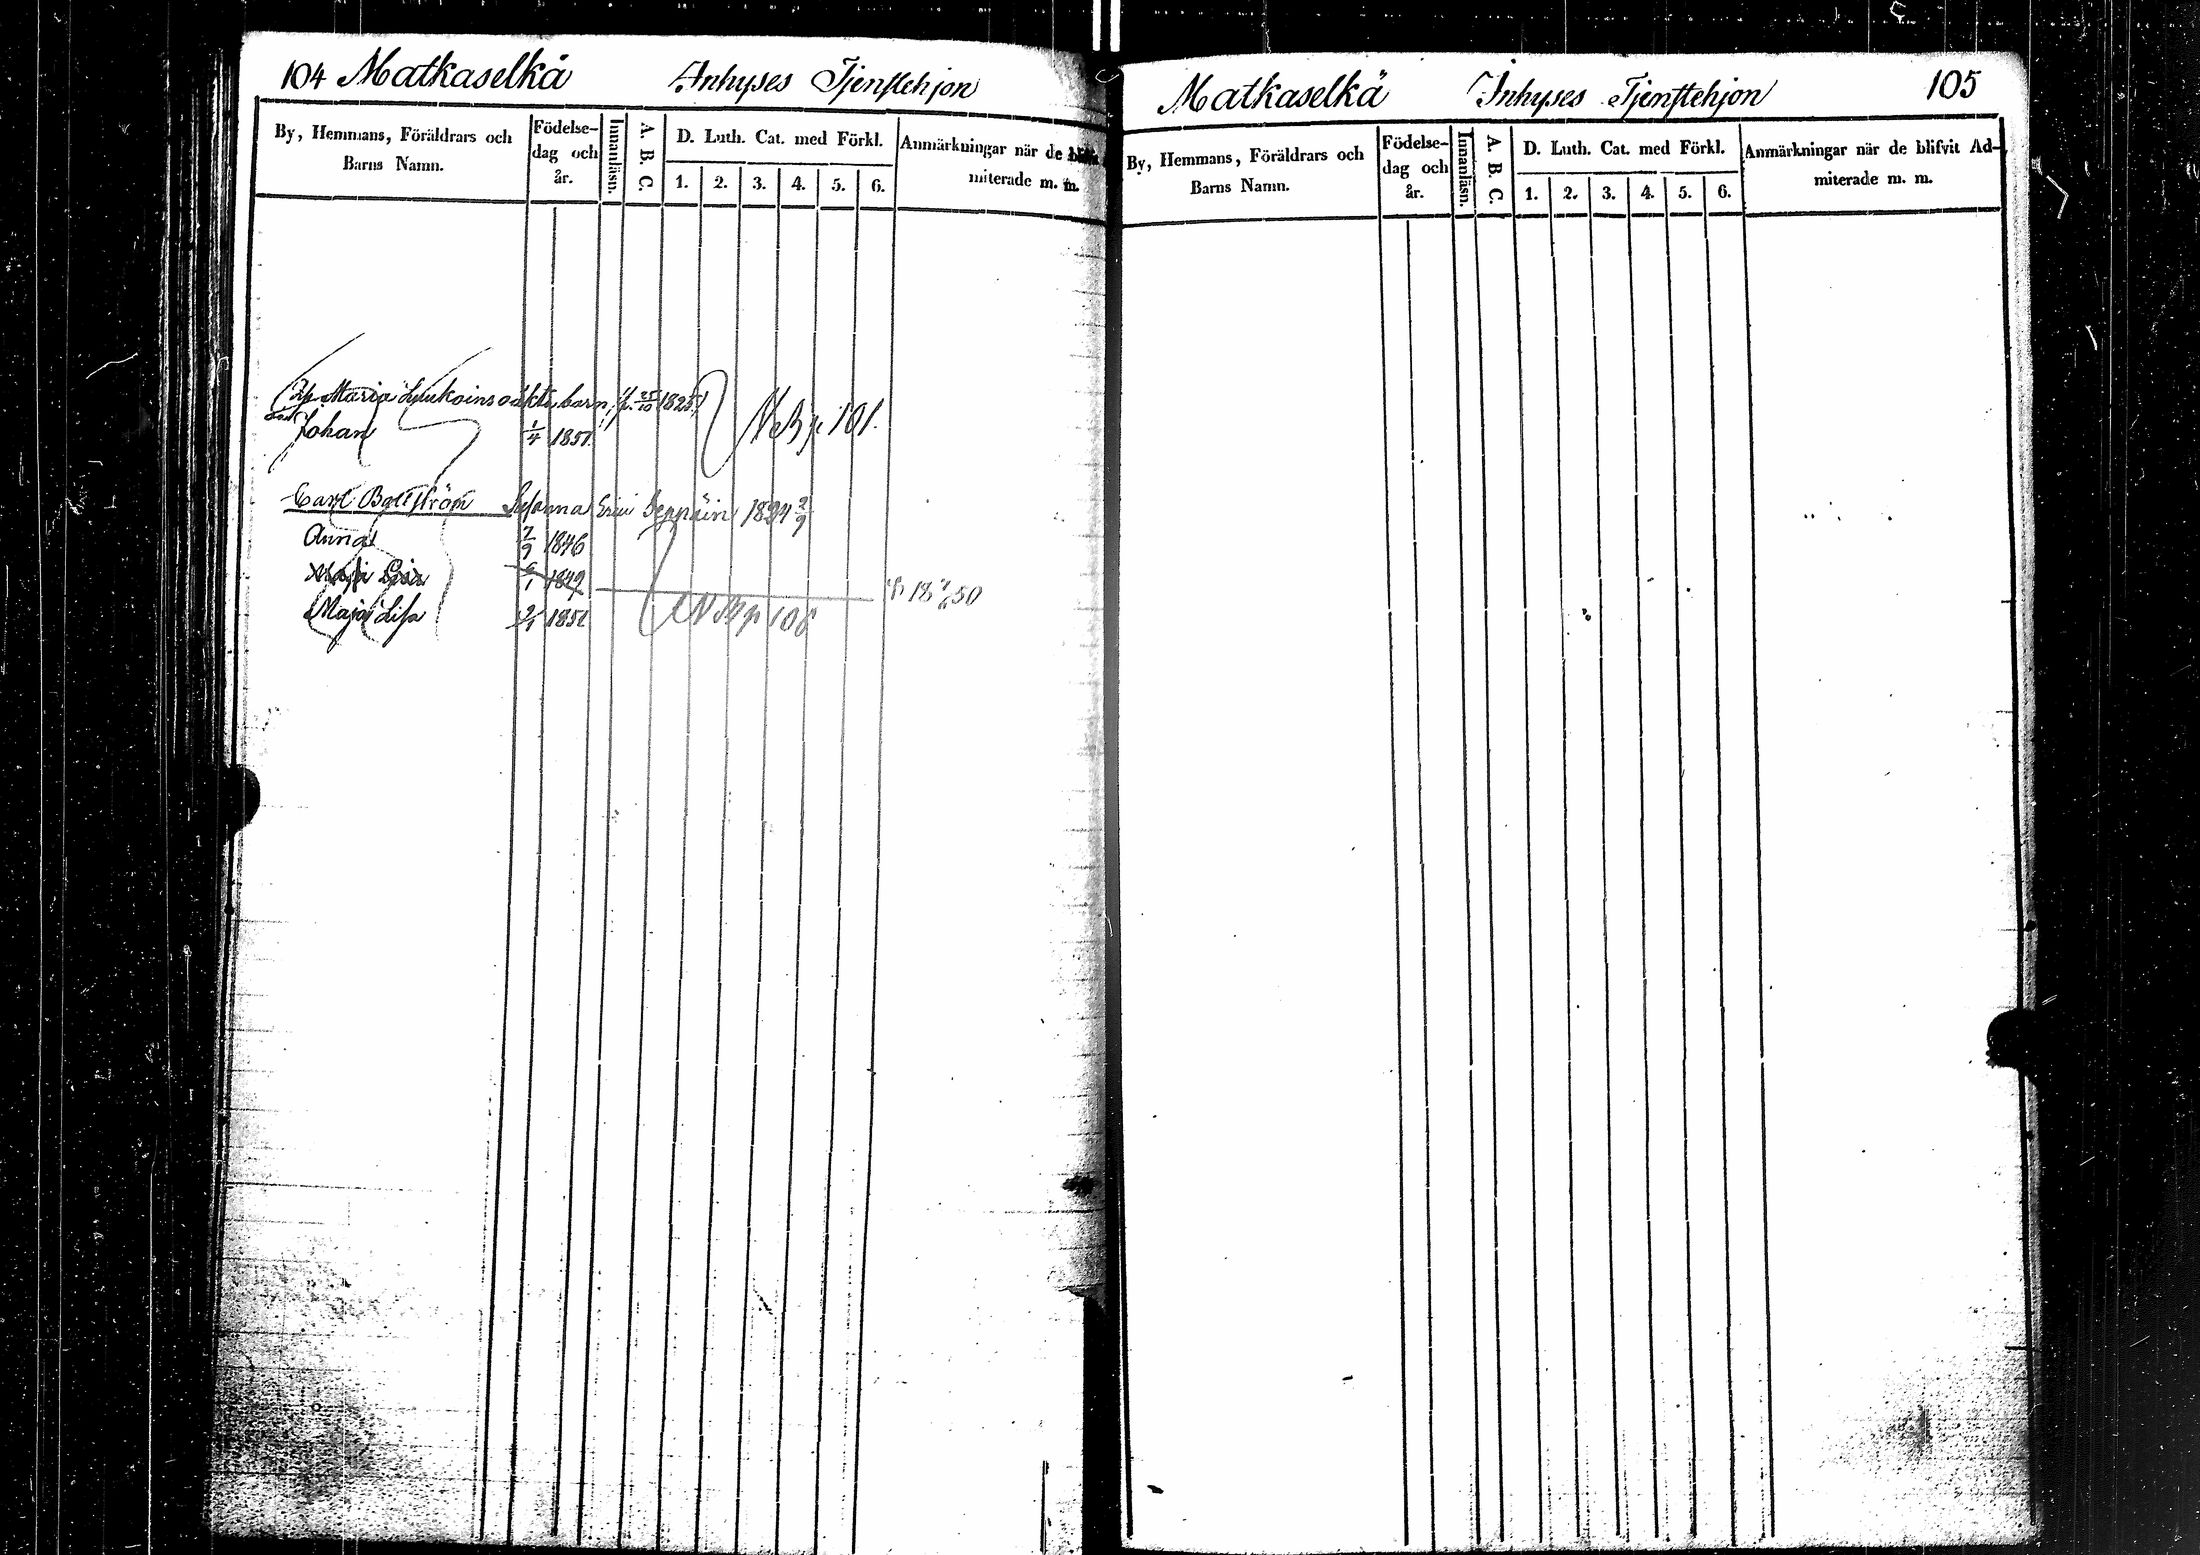 104 Matkaselkä Inhyses Tjenstehjon
By, Hemmans, Föräldrars och Barns Namn.
Födelse-dag och år.
Innanläsn.
A. B. C.
D. Luth. Cat. med Förkl.
1. 2. 3. 4. 5. 6.
Anmärkningar när de blifvit
miterade m. m.
Maria oäkta barn 25/10 1825
Johan 1/4 1851. NB p. 101.
Carl Susanna Eric Seppäin 1824 2/9
Anna 7/9 1846
6/1 1849 1850
Maja Lisa 2/1 1851 NB p 108
Matkaselkä Inhyses Tjenstehjon 105
By, Hemmans, Föräldrars och Barns Namn.
Födelse-dag och år.
Innanläsn.
A. B. C.
D. Luth. Cat. med Förkl.
1. 2. 3. 4. 5. 6.
Anmärkningar när de blifvit Ad-
miterade m. m.